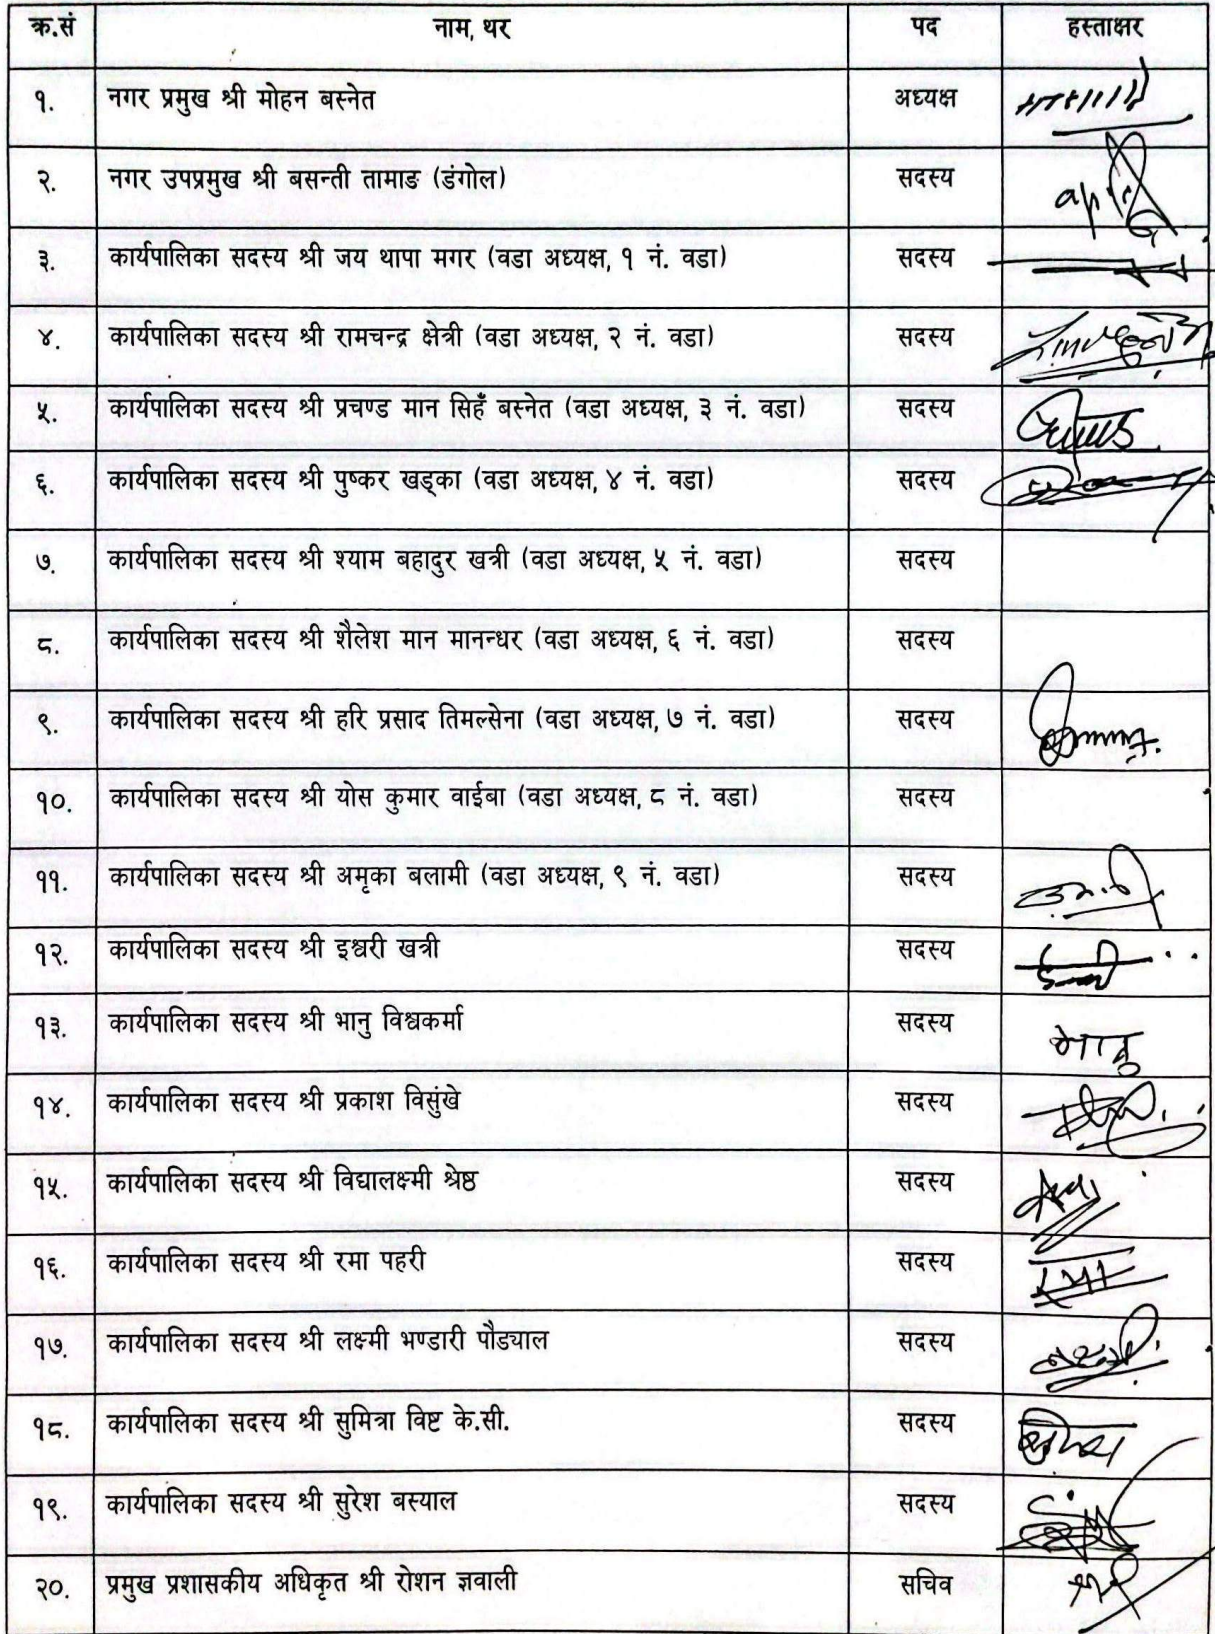 क्र.सं नाम, थर पद हस्ताक्षर
१. नगर प्रमुख श्री मोहन बस्नेत अध्यक्ष
२. नगर उपप्रमुख श्री बसन्ती तामाङ (डंगोल) सदस्य
३. कार्यपालिका सदस्य श्री जय थापा मगर (वडा अध्यक्ष, १ नं. वडा) सदस्य
४. कार्यपालिका सदस्य श्री रामचन्द्र क्षेत्री (वडा अध्यक्ष, २ नं. वडा) सदस्य
५. कार्यपालिका सदस्य श्री प्रचण्ड मान सिहँ बस्नेत (वडा अध्यक्ष, ३ नं. वडा) सदस्य
६. कार्यपालिका सदस्य श्री पुष्कर खड्का (वडा अध्यक्ष, ४ नं. वडा) सदस्य
७. कार्यपालिका सदस्य श्री श्याम बहादुर खत्री (वडा अध्यक्ष, ५ नं. वडा) सदस्य
८. कार्यपालिका सदस्य श्री शैलेश मान मानन्धर (वडा अध्यक्ष, ६ नं. वडा) सदस्य
९. कार्यपालिका सदस्य श्री हरि प्रसाद तिमल्सेना (वडा अध्यक्ष, ७ नं. वडा) सदस्य
१०. कार्यपालिका सदस्य श्री योस कुमार वाईबा (वडा अध्यक्ष, ८ नं. वडा) सदस्य
११. कार्यपालिका सदस्य श्री अमृका बलामी (वडा अध्यक्ष, ९ नं. वडा) सदस्य
१२. कार्यपालिका सदस्य श्री इश्वरी खत्री सदस्य
१३. कार्यपालिका सदस्य श्री भानु विश्वकर्मा सदस्य भानु
१४. कार्यपालिका सदस्य श्री प्रकाश विसुंखे सदस्य
१५. कार्यपालिका सदस्य श्री विद्यालक्ष्मी श्रेष्ठ सदस्य
१६. कार्यपालिका सदस्य श्री रमा पहरी सदस्य रमा
१७. कार्यपालिका सदस्य श्री लक्ष्मी भण्डारी पौड्याल सदस्य
१८. कार्यपालिका सदस्य श्री सुमित्रा विष्ट के.सी. सदस्य
१९. कार्यपालिका सदस्य श्री सुरेश बस्याल सदस्य
२०. प्रमुख प्रशासकीय अधिकृत श्री रोशन ज्ञवाली सचिव